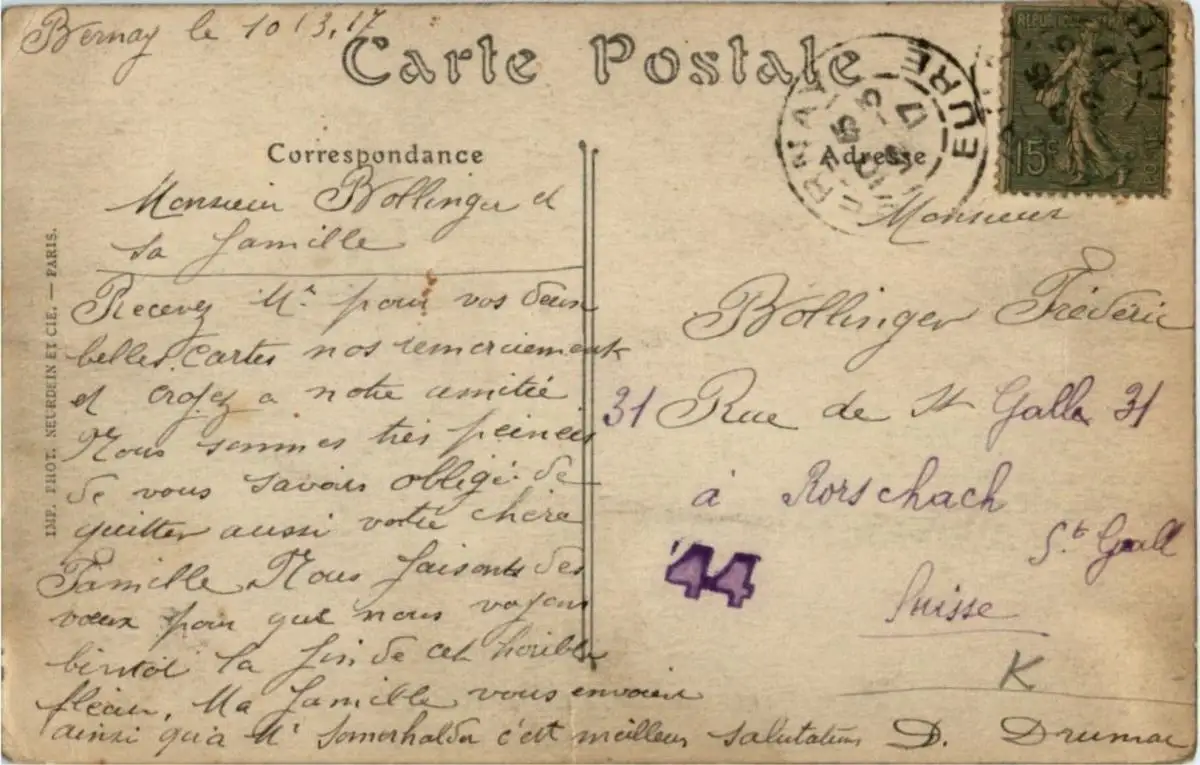 Bernay le 10 13.17
Carte Postale
REPUBLIQUE FRANÇAISE
15c
EURE
Correspondance
Adresse
Monsieur Bollinger et
sa famille
Recevez Mr pour vos deux
belles cartes nos remerciement
et croyez a notre amitié
Nous sommes très peinés
de vous savoir obligé de
quitter aussi votre chère
Famille Nous faisons des
vœux pour que nous voyons
bientot la fin de cet horible
fléau, Ma famille vous envoient
ainsi qu'a Mr Somerhalder c'est meilleur salutations D. Drumac
Monsieur
Bollinger Frédéric
31 Rue de St Galle 31
à Rorschach
St Gall
44
Suisse
K
IMP. PHOT. NEURDEIN ET CIE. — PARIS.